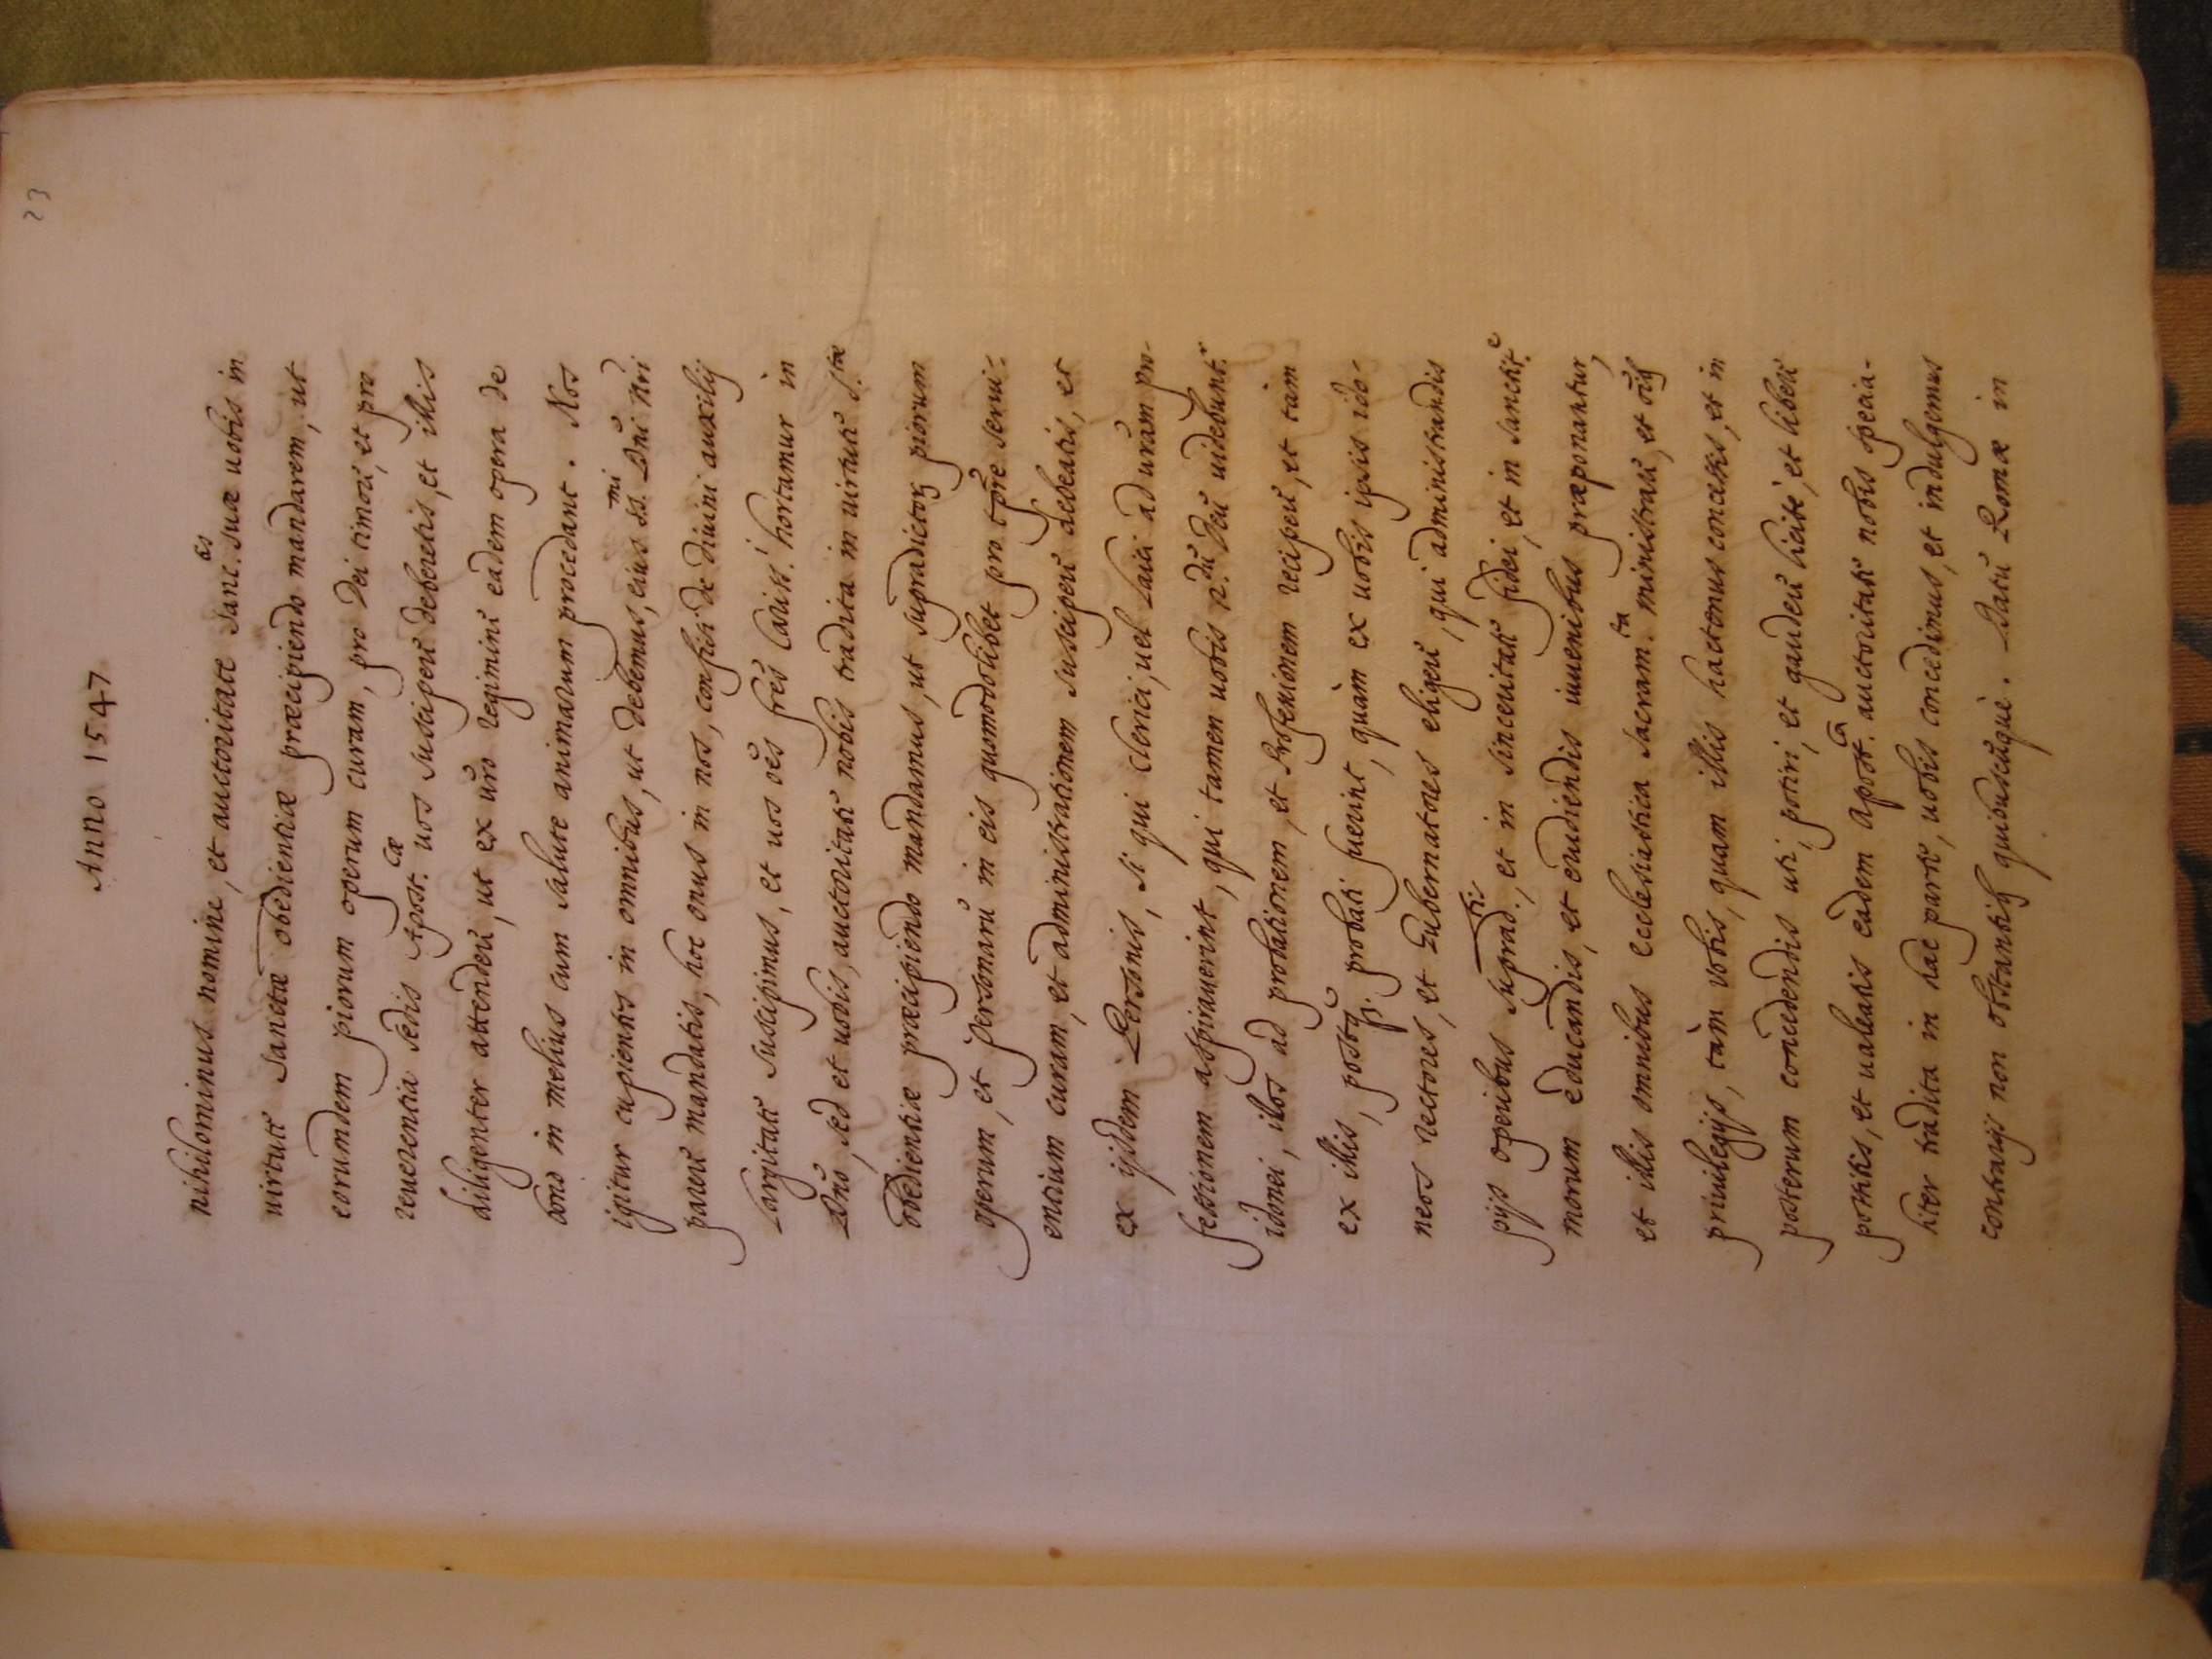 23
Anno 1547
nihilominus nomine, et auctoritate Sanc.tis suæ uobis in
uirtute Sanctæ obedientiæ præcipiendo mandarem, ut
eorumdem piorum operum curam, pro Dei timore, et pro
reuerentia Sedis Apost.cæ uos suscipere deberetis, et illis
diligenter attendere, ut ex uro regimine eadem opera de
bono in melius cum salute animarum procedant. Nos
igitur cupientes in omnibus, ut debemus, eius ss.mi Dni Nri
parere mandatis, hoc onus in nos, confisi de diuini auxilij
largitate suscipimus, et uos oes fres Cariss.i hortamur in
Dno, sed et uobis, auctoritate nobis tradita in uirtute S.tæ
obedientiæ præcipiendo mandamus, ut supradictoꝝ piorum
operum, et personaru in eis quomodolibet pro tpre serui-
entium curam, et administrationem suscipere debeatis, et
ex ijsdem Personis, si qui clerici, uel Laici ad uram pro-
fessionem aspirauerint, qui tamen uobis 2.du Deu uidebunt.r
idonei, illos ad probationem, et Professionem recipere, et tam
ex illis, postq̃ p. probati fuerint, quàm ex uobis ipsis ido-
neos rectores, et Gubernatores eligere, qui administrandis
pijs operibus suprad.tis, et in sinceritate fidei, et in sanctit.e
morum educandis, et erudiendis iuuenibus præponantur,
et illis omnibus ecclesiastica sacram.ta ministrare, et oĩbꝫ
priuilegijs, tàm vobis, quam illis hactenus concessis, et in
posterum concedendis uti, potiri, et gaudere licite, et libere
possitis, et ualeatis eadem Apost.ca auctoritate nobis specia-
liter tradita in hac parte, uobis concedimus, et indulgemus
contrarijs non obstantibꝫ quibuscuque. Datu Romæ in